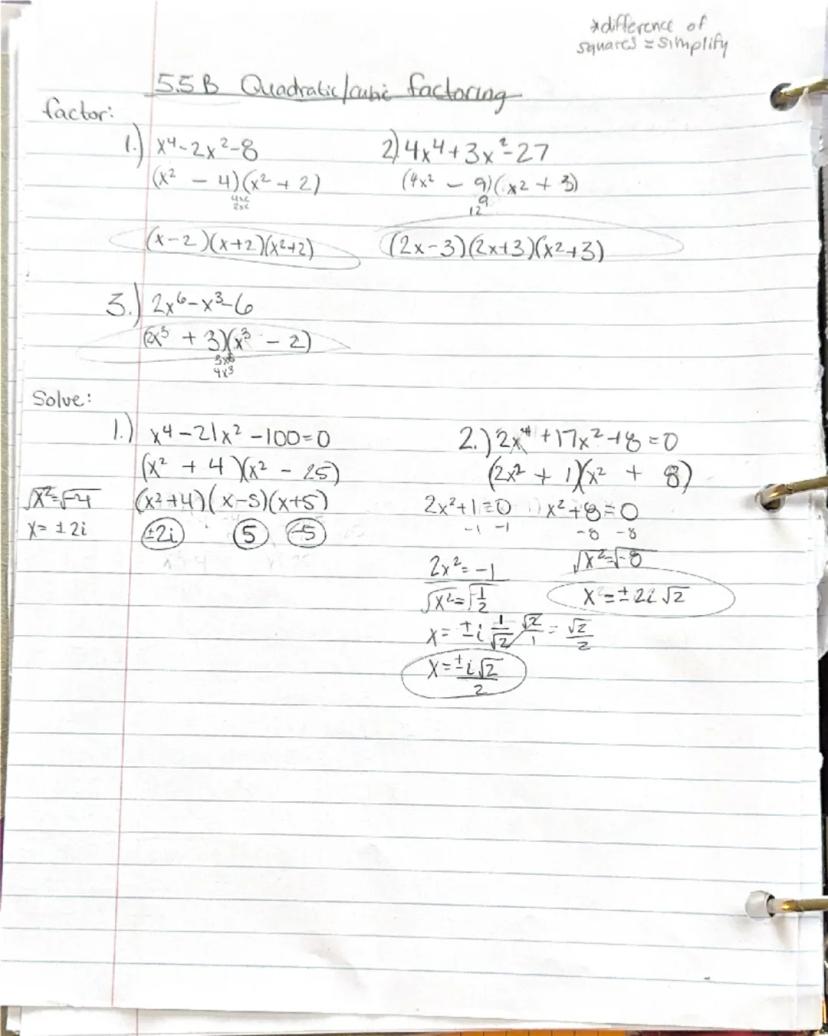 *difference of
squares = simplify
5.5B Quadratic/cubic factoring
factor:
1.) x⁴-2x²-8
(x² - 4)(x² + 2)
4x²
2x²
(x-2)(x+2)(x²+2)
2) 4x⁴+3x²-27
(4x² - 9)(x² + 3)
9
12
(2x-3)(2x+3)(x²+3)
3.) 2x⁶-x³-6
(2x³ + 3)(x³ - 2)
3x³
4x³
Solve:
1.) x⁴-21x²-100=0
(x² + 4)(x² - 25)
(x²+4)(x-5)(x+5)
√x²=√-4
x= ±2i
±2i 5 -5
2.) 2x⁴+17x²+8=0
(2x² + 1)(x² + 8)
2x²+1=0 x²+8=0
-1 -1 -8 -8
2x²=-1 √x²=√-8
√x²=√-1/2 x=±2i√2
x= ±i 1/√2 √2/1 = √2/2
x=±i√2/2